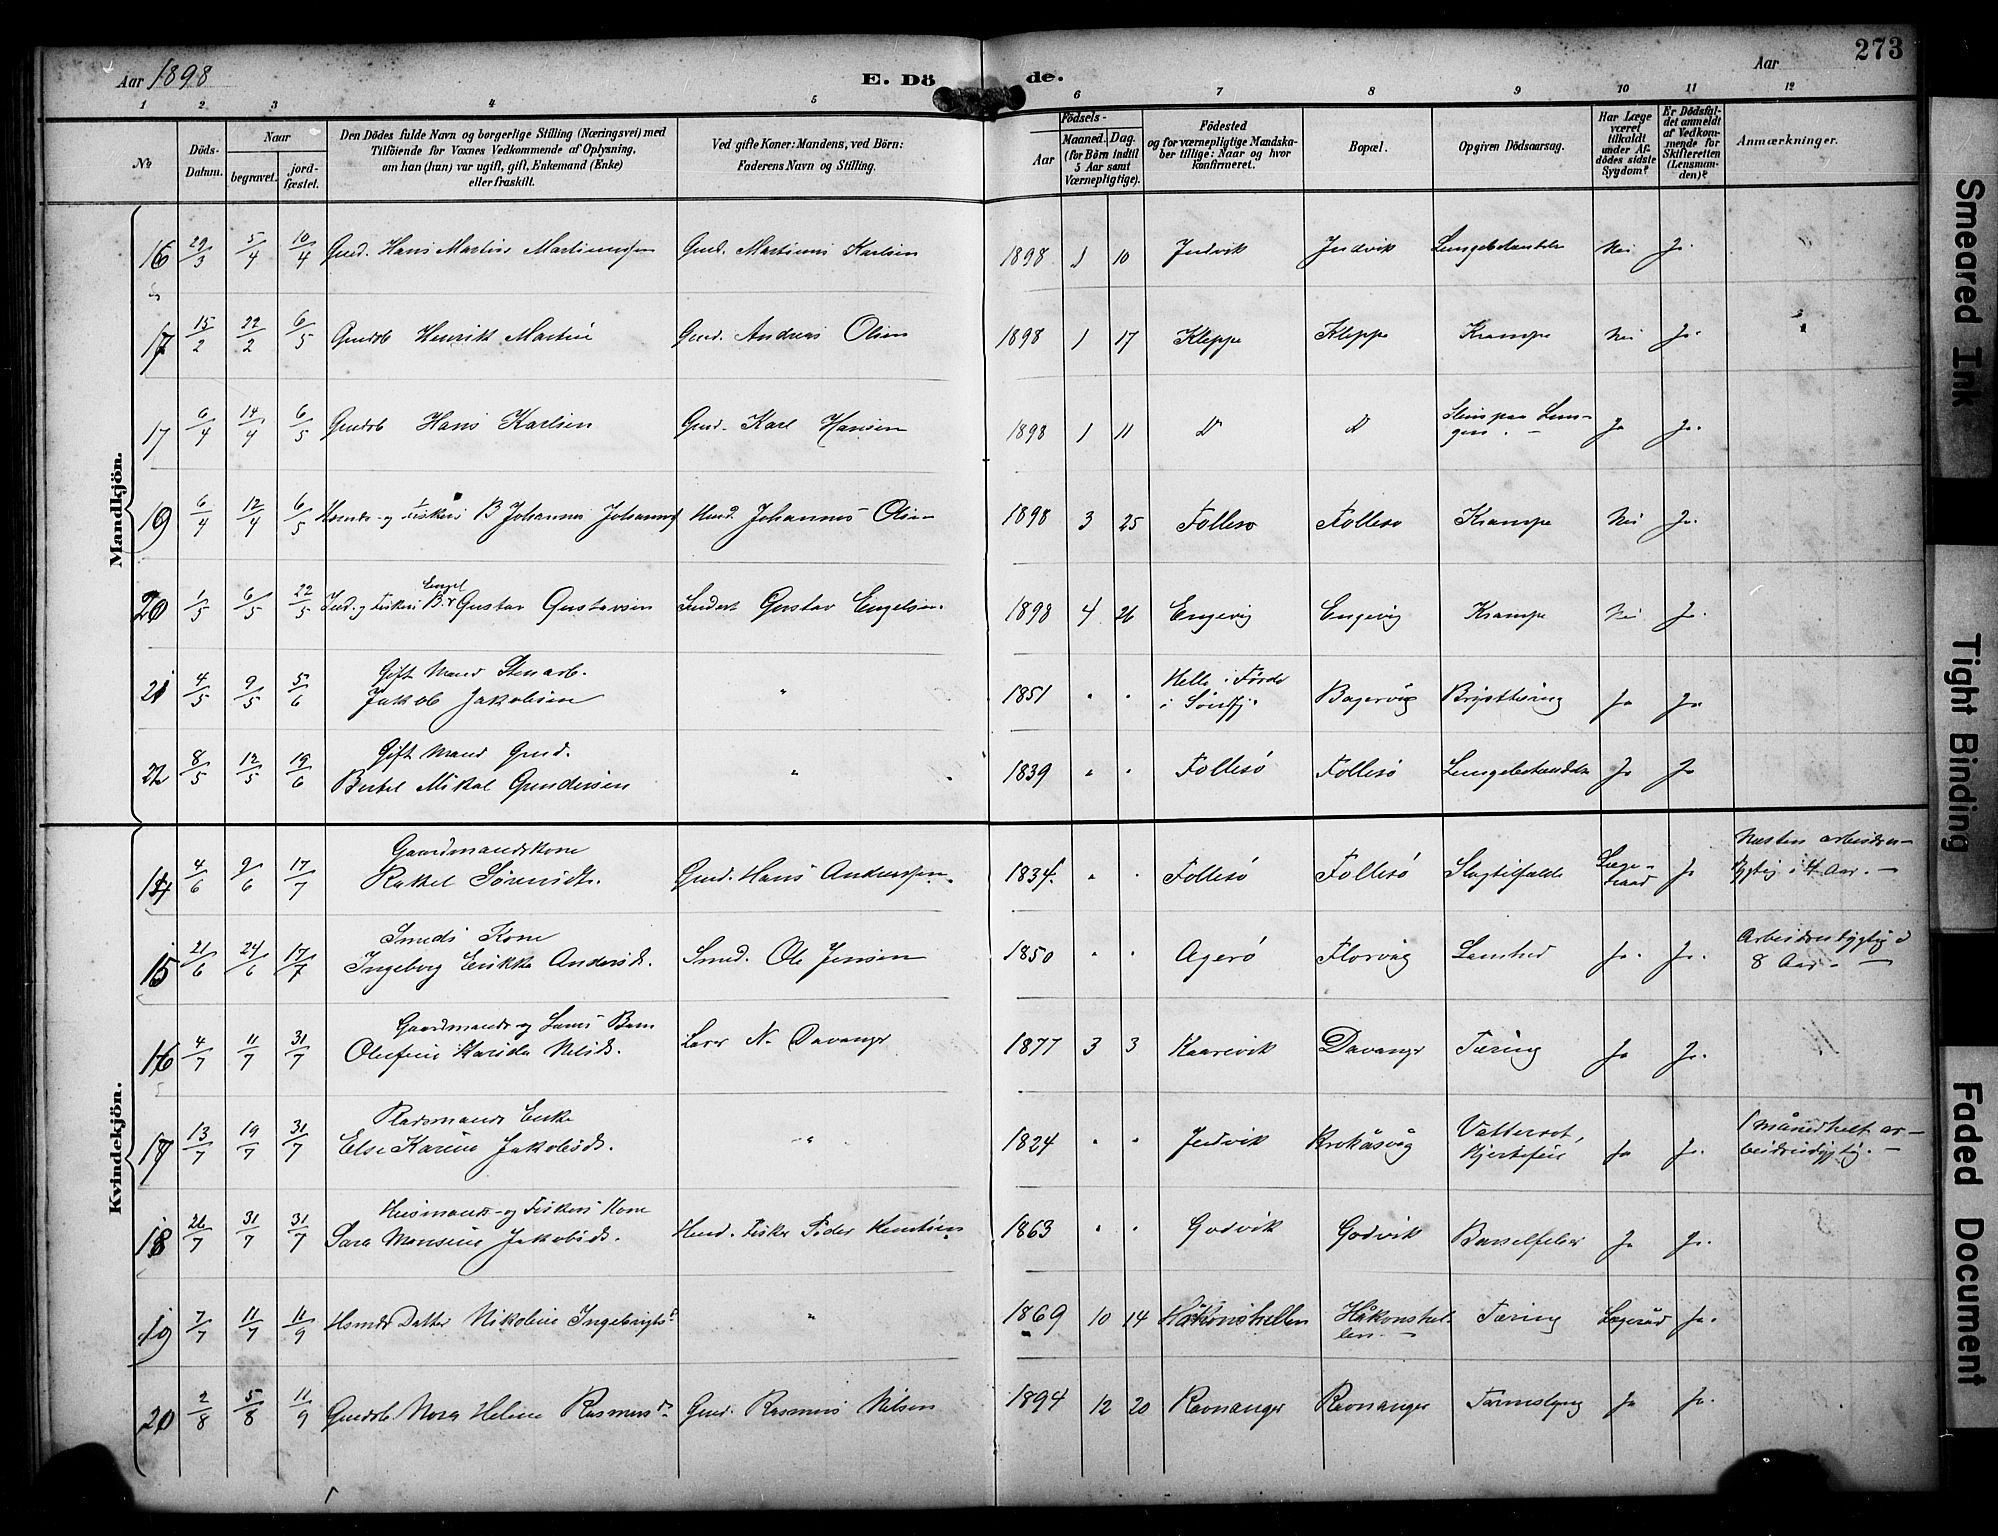 Aar 1898
E. Dö de.
Aar
273
1 2 3 4 5 6 7 8 9 10 11 12
No
Döds-Datum.
Naar
begravet.
jord-fæstet.
Den Dödes fulde Navn og borgerlige Stilling (Næringsvei) med
Tilföiende for Voxnes Vedkommende af Oplysning,
om han (hun) var ugift, gift, Enkemand (Enke)
eller fraskilt.
Ved gifte Koner: Mandens, ved Börn:
Faderens Navn og Stilling.
Födsels-
Aar
Maaned. Dag.
(for Börn indtil
5 Aar samt
Værnepligtige).
Födested
og for værnepligtige Mandska-
ber tillige: Naar og hvor
konfirmeret.
Bopæl.
Opgiven Dödsaarsag.
Har Læge
været
tilkaldt
under Af-
dödes sidste
Sygdom?
Er Dödsfal-
det anmeldt
af Vedkom-
mende for
Skifteretten
(Lensman-
den)?
Anmærkninger.
Mandkjön.
16 29/3 5/4 10/4 Gmd. Hans Martin Martinussen Gmd. Martinus Karlsen 1898 1 10 Indvik Indvik Lungebetændelse Nei Ja.
17 15/2 22/2 6/5 Gmdsb Henrik Martin Gmd. Andreas Olsen 1898 1 17 Kleppe Kleppe Krampe Nei Ja.
17 6/4 14/4 6/5 Gmdsb Hans Karlsen Gmd. Karl Hansen 1898 1 11 Do Do Slim paa Lun-
gen. Ja Ja.
19 6/4 12/4 6/5 Hsmds- og Fiskers B Johannes Johannes Hmd. Johannes Olsen 1898 3 25 Follesø Follesø Krampe Nei Ja.
20 1/5 6/5 22/5 Ind. og Fiskers B. Engel Gustav Gustavsen Inderst Gustav Engelsen. 1898 4 26 Engevig Engevig Krampe Nei Ja.
21 4/5 9/5 5/6 Gift Mand Stenarb.
Jakob Jakobsen " 1851 " " Helle i Førde
i Søndfj. Bagervig Brysttæring Ja Ja.
22 8/5 12/5 19/6 Gift Mand Gmd.
Bertel Mikal Gundersen " 1839 " " Follesø Follesø Lungebetændelse Ja Ja
Kvindekjön.
14 4/6 9/6 17/7 Gaardmandskone
Rakkel Sørensdtr. Gmd. Hans Anderssen. 1834. " " Follesø Follesø Slagtilfælde Læge-
raad Ja Næsten arbeidsu-
dygtig i 4 Aar. —
15 21/6 24/6 17/7 Smeds Kone
Ingeborg Erikka Andersdt. Smed. Ole Jensen 1850 " " Agerø Florvåg Lamhed Ja. Ja. Arbeidsudygtig i
8 Aar. —
16 4/7 11/7 31/7 Gaardmands- og Barn
Nilsdt. N. Davanger 1877 3 3 Kaarevik Davanger Tæring Ja Ja.
17 13/7 19/7 31/7 Pladsmands Enke
Else Karine Jakobsdt. " 1824 " " Indvik Krokåsvåg Vattersot,
Hjertefeil Ja Ja. 1 måned helt ar-
beidsudygtig. —
18 26/7 31/7 31/7 Husmands- og Fiskers Kone
Sara Monsine Jakobsdt. Hmd. Fisker Peder 1863 " " Godvik Godvik Barselfeber Ja Ja.
19 7/7 11/7 11/9 Hsmds Datter Nikoline Ingebrigtsd " 1869 10 14 Håkonshellen Håkonshel-
len. — Tæring Lægeråd Ja.
20 2/8 5/8 11/9 Gmdsb. Nora Helene Rasmusdr. Gmd. Rasmus Nilsen 1894 12 20 Ravnanger Ravnanger Tarmslyng Ja Ja.
Smeared Ink
Tight Binding
Faded Document